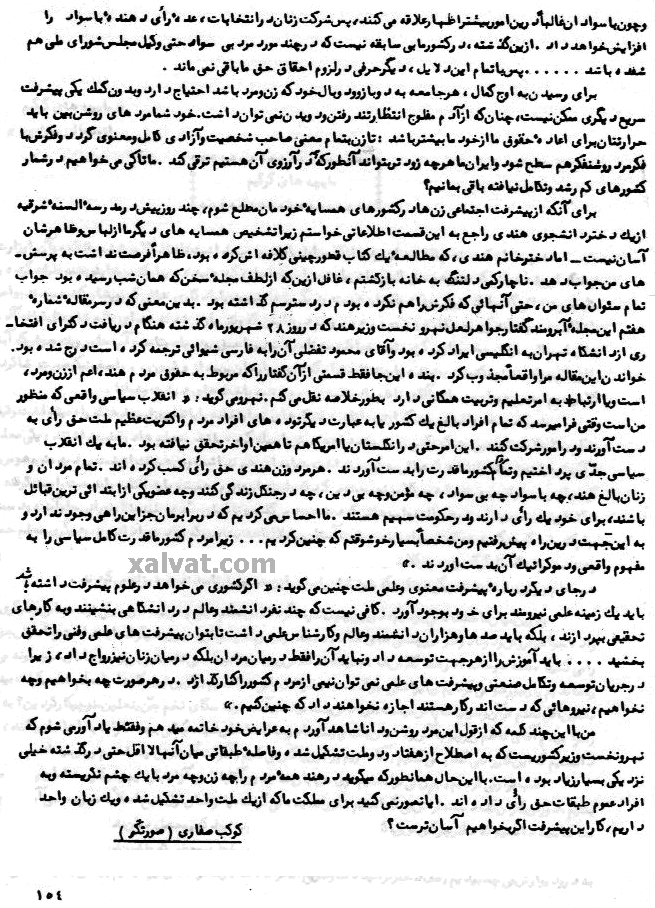 وچون با سواد ان غالباً در این امور بیشتر اظهار علاقه می کنند، پس شرکت زنان در انتخابات، عده رأی دهنده با سواد را
افزایش خواهد داد. از این گذشته، در کشور ما بی سابقه نیست که در چند مورد مرد بی سواد حتی وکیل مجلس شورای ملی هم
شده باشد ...... پس با تمام این دلایل، دیگر حرفی در لزوم احقاق حق ما باقی نمی ماند.
برای رسیدن به اوج کمال، هر جامعه به دو بازو و بال خود که زن و مرد باشد احتیاج دارد و بدون کمک یکی پیشرفت
سریع دیگری ممکن نیست، چنان که از آدم مفلوج انتظار تند رفتن و دویدن نمی توان داشت. خود شما مرد های روشن بین باید
حرارتتان برای اعاده حقوق ما از خود ما بیشتر باشد: تا زن بتمام معنی صاحب شخصیت و آزادی کامل و معنوی گردد و فکرش با
فکر مرد روشنفکر هم سطح شود و ایران ما هر چه زود تر بتواند آنطور که در آرزوی آن هستیم ترقی کند. ما تا کی می خواهیم در شمار
کشورهای کم رشد و تکامل نیافته باقی بمانیم؟
برای آنکه از پیشرفت اجتماعی زن ها در کشورهای همسایه خودمان مطلع شوم، چند روز پیش در مدرسه السنه شرقیه
از یک دختر دانشجوی هندی راجع به این قسمت اطلاعاتی خواستم زیرا تشخیص همسایه های دیگر ما از لباس و ظاهرشان
آسان نیست ــ اما دختر خانم هندی، که مطالعه یک کتاب قطور چینی کلافه اش کرده بود، ظاهراً فرصت نداشت به پرسش ــ
های من جواب دهد. ناچار کمی دلتنگ به خانه بازگشتم، غافل از این که از لطف مجله سخن که همان شب رسیده بود جواب
تمام سئوال های من، حتی آنهائی که فکرش را هم نکرده بودم در دسترسم گذاشته بود. بدین معنی که در سر مقاله شماره
هفتم این مجله آبرومند گفتار جواهر لعل نهرو نخست وزیر هند که در روز ۲۸ شهریور ماه گذشته هنگام دریافت دکترای افتخا ــ
ری از دانشگاه تهران به انگلیسی ایراد کرده بود و آقای محمود تفضلی آن را به فارسی شیوائی ترجمه کرده است درج شده بود.
خواندن این مقاله مرا واقعاً مجذوب کرد. بنده این جا فقط قسمتی از آن گفتار را که مربوط به حقوق مردم هند، اعم از زن و مرد،
است و یا ارتباط به امر تعلیم و تربیت همگانی دارد بطور خلاصه نقل می کنم. نهرو می گوید: « انقلاب سیاسی واقعی که منظور
من است وقتی فرا میرسد که تمام افراد بالغ یک کشور یا به عبارت دیگر توده های افراد مردم و اکثریت عظیم ملت حق رأی به
دست آورند و در امور شرکت کنند. این امر حتی در انگلستان یا امریکا هم تا همین اواخر تحقق نیافته بود. ما به یک انقلاب
سیاسی جدّی پرداختیم و تمام مردم کشور ما قدرت را به دست آوردند. هر مرد و زن هندی حق رأی کسب کرده اند. تمام مردان و
زنان بالغ هند، چه با سواد چه بی سواد، چه مؤمن و چه بی دین، چه در جنگل زندگی کنند و چه عضو یکی از ابتدائی ترین قبائل
باشند، برای خود یک رأی دارند و در حکومت سهیم هستند. ما احساس می کردیم که در برابرمان جز این راهی وجود ندارد و
به این جهت در این راه پیش رفتیم و من شخصاً بسیار خوشوقتم که چنین کردیم... زیرا مردم کشور ما قدرت کامل سیاسی را به
مفهوم واقعی و دموکراتیک آن بدست اوردند. »
xalvat.com
در جای دیگر درباره پیشرفت معنوی و علمی ملت چنین می گوید: « اگر کشوری می خواهد در علوم پیشرفت داشته باشد
باید یک زمینه علمی نیرومند برای خود بوجود آورد. کافی نیست که چند نفر دانشمند و عالم در دانشگاهی بنشینند و به کارهای
تحقیقی بپردازند، بلکه باید صدها و هزاران دانشمند و عالم و کارشناس علمی داشت تا بتوان پیشرفت های علمی و فنی را تحقق
بخشید .... باید آموزش را از هر جهت توسعه داد و نباید آن را فقط در میان مردان بلکه در میان زنان نیز رواج داد، زیرا
در جریان توسعه و تکامل صنعتی و پیشرفت های علمی نمی توان نیمی از مردم کشور را کنار گذارد. در هر صورت چه بخواهیم و چه
نخواهیم، نیروهائی که دست اندرکار هستند اجازه نخواهند داد که چنین کنیم. »
من با این چند کلمه که از قول این مرد روشن و دانا شاهد آوردم به عرایض خود خاتمه میدهم و فقط یادآوری می شوم که
نهرو نخست وزیر کشوریست که به اصطلاح از هفتاد و دو ملت تشکیل شده و فاصله طبقاتی میان آنها لا اقل حتی در گذشته خیلی
نزدیکی بسیار زیاد بوده است. با این حال همانطور که میگوید در هند همه مردم را چه زن و چه مرد با یک چشم نگریسته و به
افراد عموم طبقات حق رأی داده اند. ایا تصور نمی کنید برای مملکت ما که از یک ملت واحد تشکیل شده و یک زبان واحد
داریم، کار این پیشرفت اگر بخواهیم آسان تر است؟
کوکب صفاری ( صورتگر )
۱۵۴